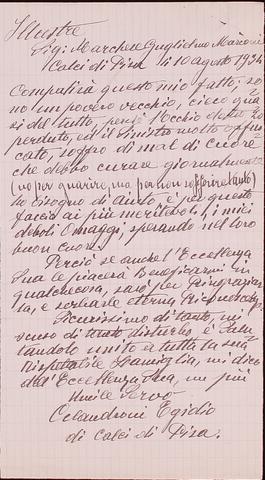 Illustre
Sig: Marchese Guglielmo Marconi
Calci di Pisa li 10 agosto 1934
Compatirà questo mio fatto; so-
no un povero vecchio, cieco qua
si del tutto, perso l'occhio destro
perduto, ed il sinistro molto offus
cato, soffro di mal di cuore
che debbo curare giornalmente
(no per guarire, ma per non soffrire tanto)
ho bisogno di aiuto e per questo
faccio ai più meritevoli, i miei
deboli Omaggi, sperando nel loro
buon Cuore.
Perciò se anche l'Eccellenza
Sua le piacerà Beneficarmi in
qualchecosa, sarò per Ringrazia
la, e serbarle eterna Riconoscenza
Sicurissimo di tanto, mi
scuso di tanto disturbo e Salu
tandolo unito a tutta la sua
Rispettabile Famiglia, mi dico
dell'Eccellenza Sua, un più
Umile Servo
Celandroni Egidio
di Calci di Pisa.